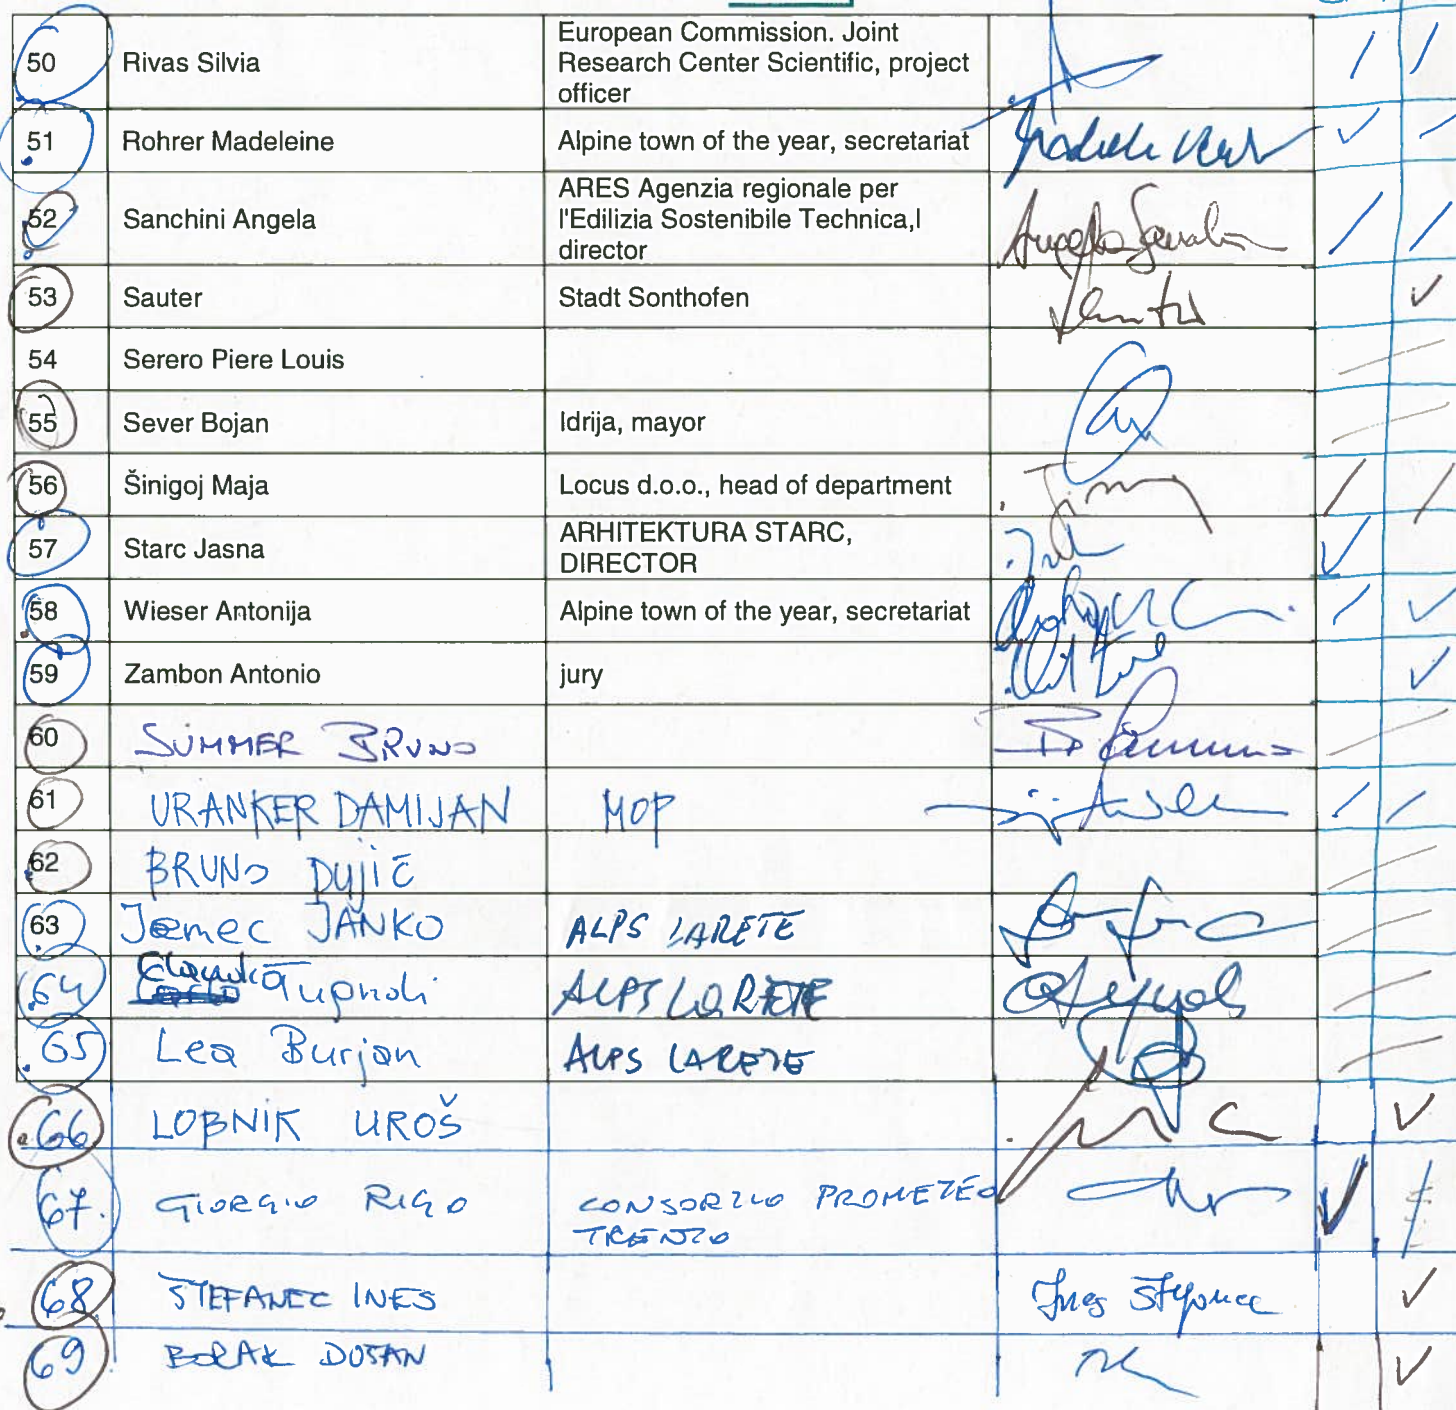 50 Rivas Silvia European Commission. Joint
Research Center Scientific, project
officer
51 Rohrer Madeleine Alpine town of the year, secretariat
52 Sanchini Angela ARES Agenzia regionale per
l'Edilizia Sostenibile Technica,l
director
53 Sauter Stadt Sonthofen
54 Serero Piere Louis
55 Sever Bojan Idrija, mayor
56 Šinigoj Maja Locus d.o.o., head of department
57 Starc Jasna ARHITEKTURA STARC,
DIRECTOR
58 Wieser Antonija Alpine town of the year, secretariat
59 Zambon Antonio jury
60 SUMMER BRUNO
61 URANKER DAMIJAN MOP
62 BRUNO DUJIČ
63 Jemec JANKO ALPS LARETE
64 ALPS LARETE
65 Lea Burjan ALPS LARETE
66 LOBNIK UROŠ
67. GIORGIO RIGO CONSORZIO PROMETEO
TRENTO
68 ŠTEFANEC INES Ines Štefanec
69 BORAK DUŠAN